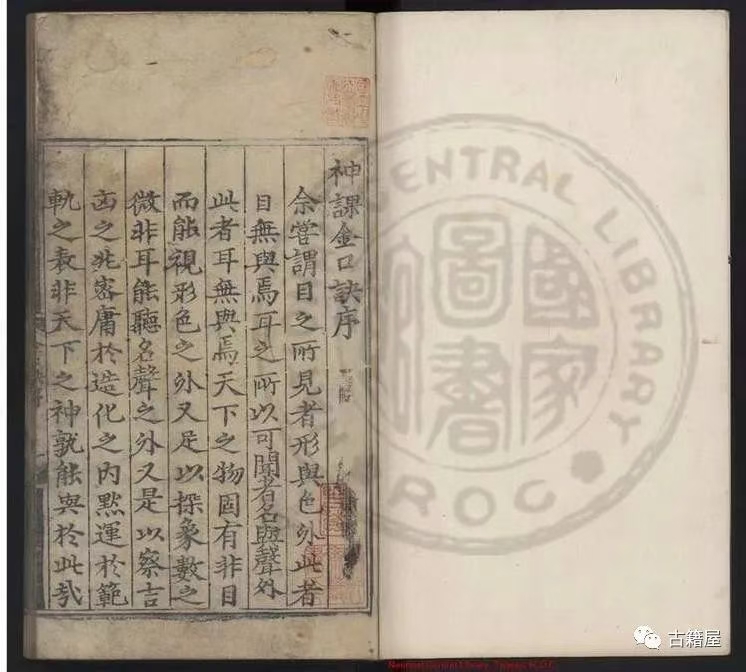 神課金口訣序
余嘗謂目之所見者形與色外此者
目無與焉耳之所以可聞者名與聲外
此者耳無與焉天下之物固有非目
而能視形色之外又足以探象數之
微非耳能聽名聲之外又是以察吉
凶之兆密庸於造化之內默運於範
軌之表非天下之神孰能與於此哉
CENTRAL LIBRARY
國家圖書
ROC
古籍屋
Central Library, Taiwan, R.O.C